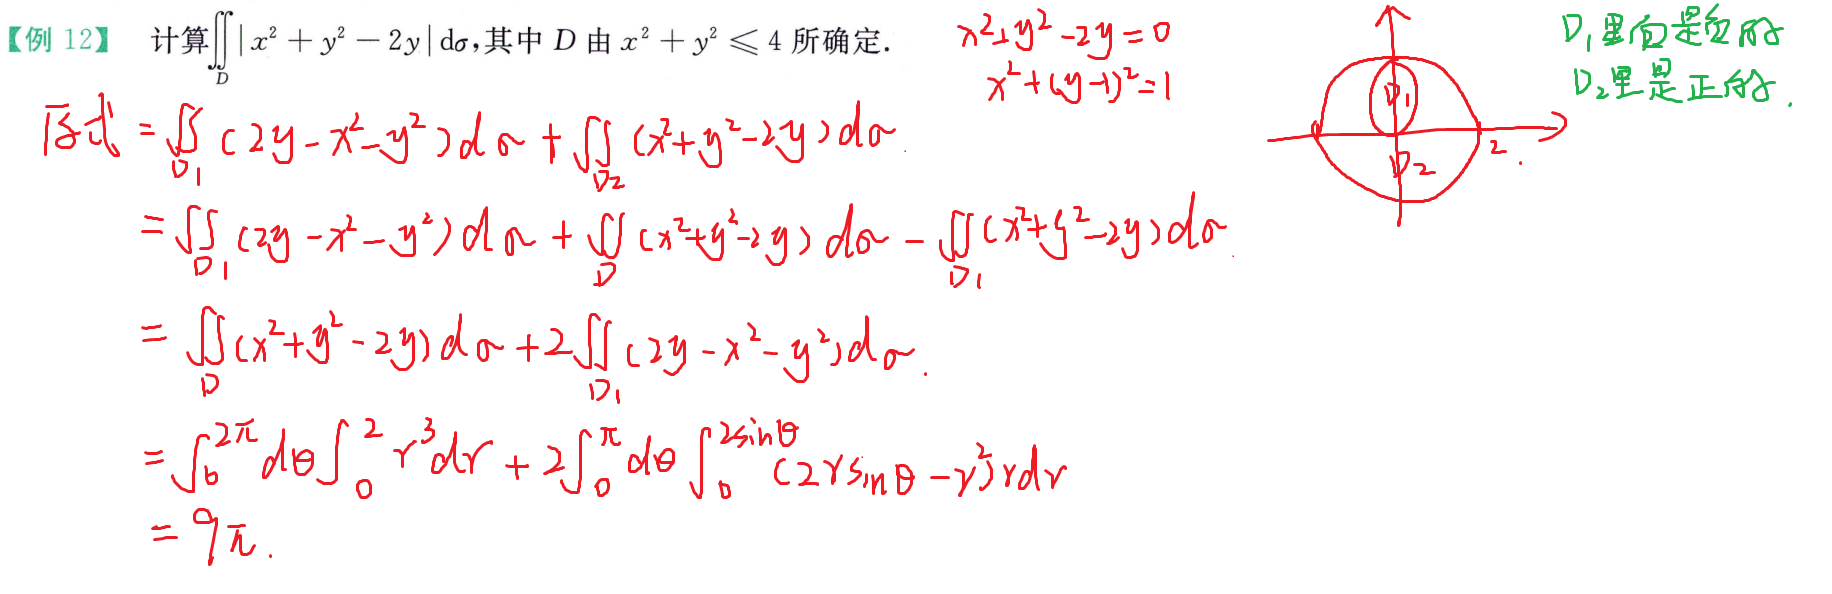 【例 12】 计算∬_D | x² + y² − 2y | dσ,其中 D 由 x² + y² ⩽ 4 所确定.
x²+y²-2y=0
x²+(y-1)²=1
D₁里面是负的
D₂里是正的.
D₁
D₂
2
原式 = ∬_D₁ (2y-x²-y²)dσ + ∬_D₂ (x²+y²-2y)dσ
= ∬_D₁ (2y-x²-y²)dσ + ∬_D (x²+y²-2y)dσ - ∬_D₁ (x²+y²-2y)dσ.
= ∬_D (x²+y²-2y)dσ + 2∬_D₁ (2y-x²-y²)dσ.
= ∫₀^2π dθ ∫₀^2 r³dr + 2∫₀^π dθ ∫₀^2sinθ (2rsinθ-r²)rdr
= 9π.